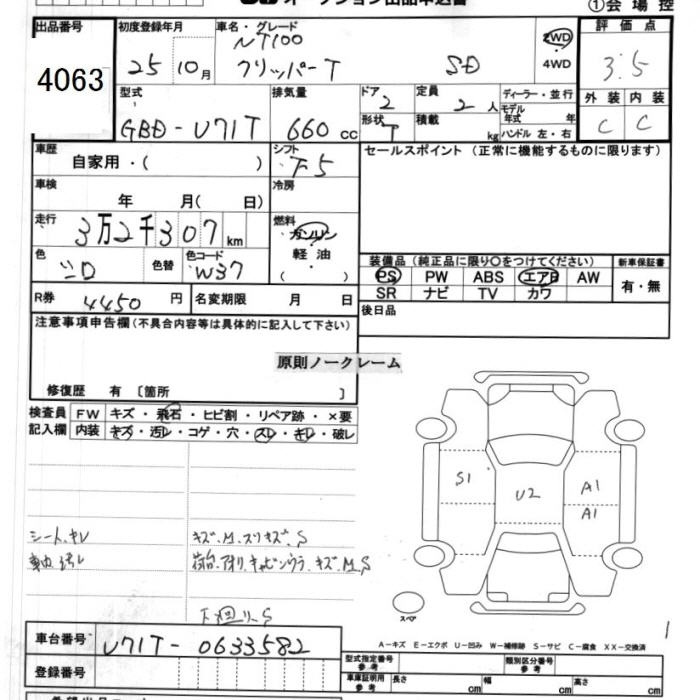 オークション出品申込書
①会場控
出品番号
4063
初度登録年月
25 10月
車名・グレード
NT100
クリッパーT SD
2WD
4WD
評価点
3.5
外装 内装
C C
型式
GBD-U71T
排気量
660 cc
ドア
2
形状
T
定員
2 人
積載
kg
ディーラー・並行
モデル
年式 年
ハンドル 左・右
車歴
自家用・( )
シフト
F5
冷房
車検
年 月( 日)
走行
3万2千307 km
燃料
ガソリン
軽油
( )
色
シロ
色替
色コード
W37
R券 4450 円
名変期限 月 日
セールスポイント (正常に機能するものに限ります)
装備品 (純正品に限り○をつけてください)
PS PW ABS エアB AW
SR ナビ TV カワ
新車保証書
有・無
後日品
注意事項申告欄(不具合内容等は具体的に記入して下さい)
原則ノークレーム
修復歴 有 [箇所 ]
検査員
記入欄
FW キズ・飛石・ヒビ割・リペア跡・×要
内装 キズ・汚レ・コゲ・穴・スレ・キレ・破レ
シート、キレ
キズ、M、スリキズ、S
荷台、アオリ、キャビンウラ、キズ、M、S
下廻り、S
S1
U2
A1
A1
スペア
1
車台番号 U71T-0633582
登録番号
A-キズ E-エクボ U-凹み W-補修跡 S-サビ C-腐食 XX-交換済
型式指定番号
参考
類別区分番号
参考
車庫証明用
参考
長さ cm 幅 cm 高さ cm